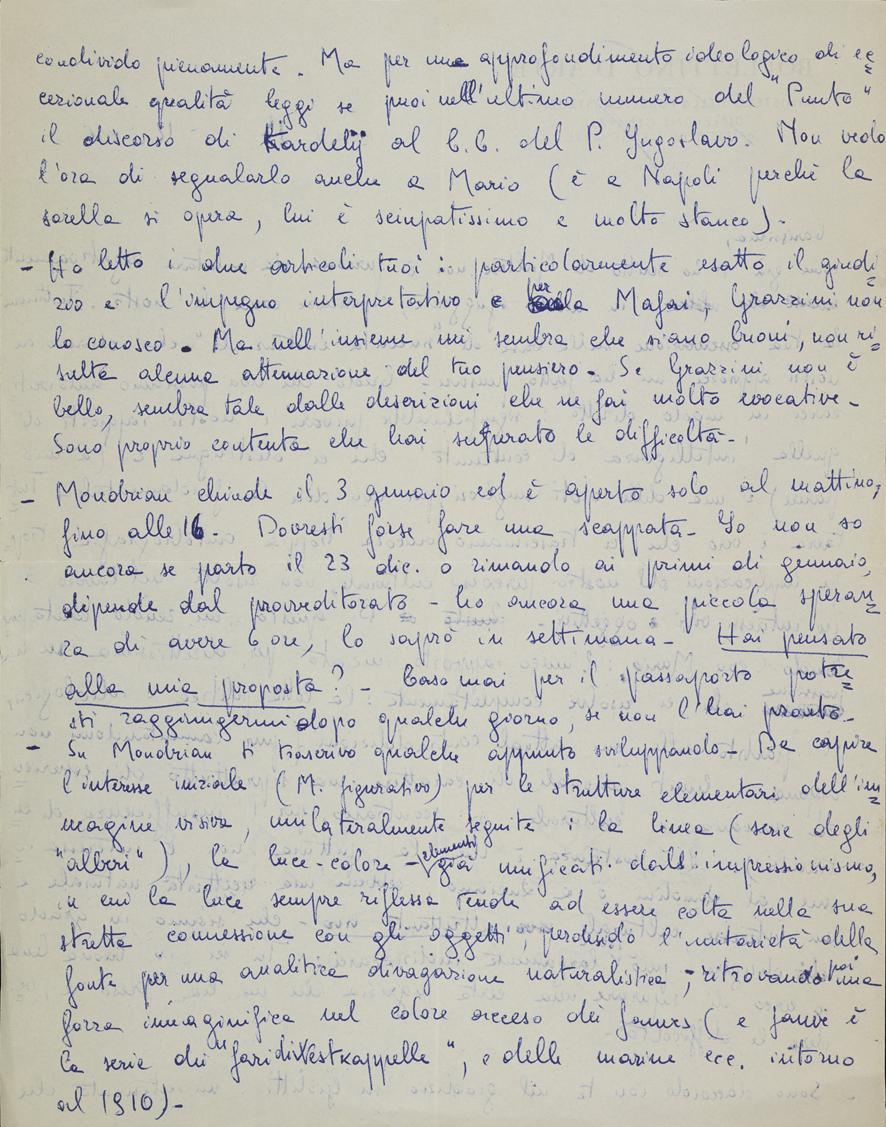 condivido pienamente. Ma per una approfondimento ideologico di ec=
cezionale qualità leggi se puoi nell'ultimo numero del "Punto"
il discorso di Kardelj al C.C. del P. Jugoslavo. Non vedo
l'ora di segnalarlo anche a Mario (è a Napoli perchè la
sorella si opera, lui è sciupatissimo e molto stanco).
- Ho letto i due articoli tuoi: particolarmente esatto il giudi=
zio e l'impegno interpretativo e per Mafai, Grazzini non
lo conosco. Ma nell'insieme mi sembra che siano buoni, non ri=
sulta alcuna attenuazione del tuo pensiero. Se Grazzini non è
bello, sembra tale dalle descrizioni che ne fai molto evocative.
Sono proprio contenta che hai superato le difficoltà.
- Mondrian chiude il 3 gennaio ed è aperto solo al mattino,
fino alle 16. Dovresti forse fare una scappata. Io non so
ancora se parto il 23 dic. o rimando ai primi di gennaio,
dipende dal provveditorato - ho ancora una piccola speran=
za di avere 6 ore, lo saprò in settimana. Hai pensato
alla mia proposta? - Caso mai per il passaporto potre=
sti raggiungermi dopo qualche giorno, se non l'hai pronto.
- Su Mondrian ti trascrivo qualche appunto sviluppando. Da capire
l'interesse iniziale (M. figurativo) per le strutture elementari dell'im=
magine visiva, unilateralmente seguite: la linea (serie degli
"alberi"), la luce-colore - elementi già unificati dall'impressionismo,
in cui la luce sempre riflessa tende ad essere colta nella sua
stretta connessione con gli oggetti, perdendo l'unitarietà della
fonte per una analitica divagazione naturalistica -, ritrovando poi una
forza immaginifica nel colore acceso dei fauves (e fauve è
la serie dei "fari di Westkappelle", e delle marine ecc. intorno
al 1910).